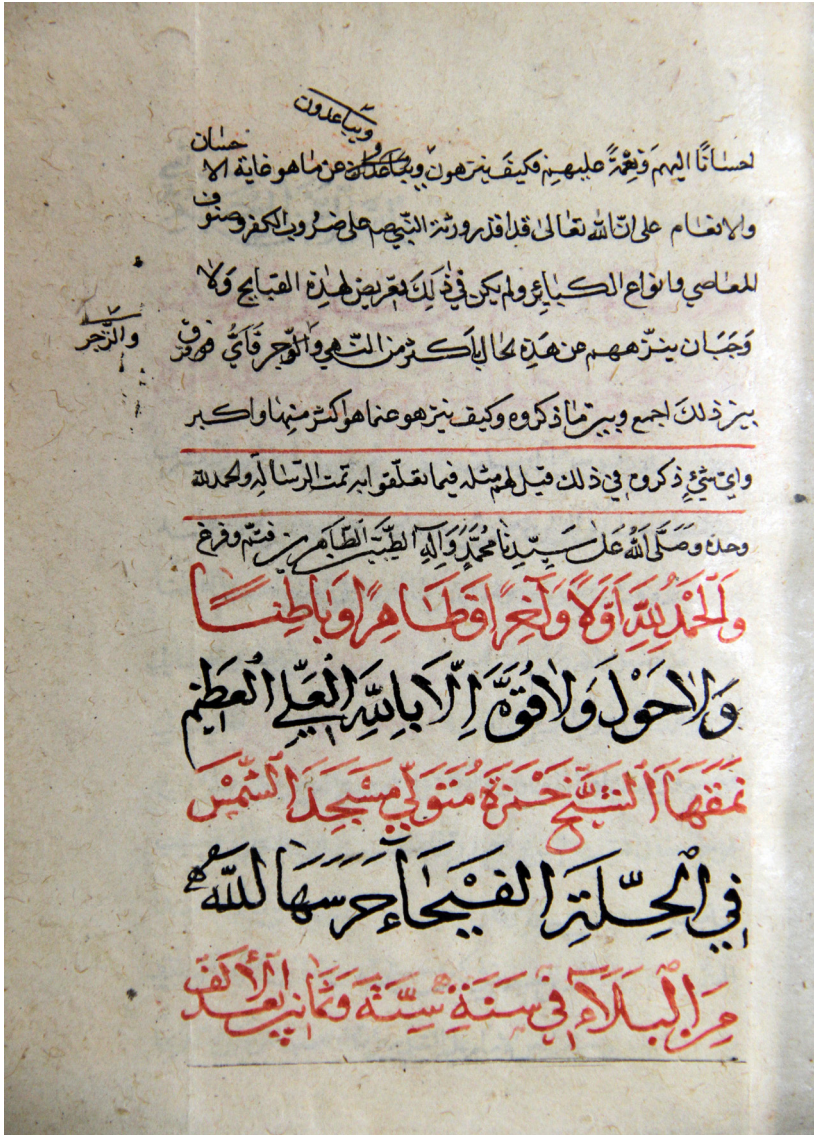 ويباعدون
احسانًا اليهم ونعمةً عليهم فكيف ينزهون ويباعدون عن ما هو غاية الاحسان
والانعام على انّ الله تعالى قد اقدر ورثة النّبي صم على ضروب الكفر وصنوف
المعاصي وانواع الكبائر ولم يكن في ذلك تعريض لهذه القبايح ولا
وجب ان ينزّههم عن هذه الحال باكثر من النّهي والزّجر فايّ فرق
والزّجر
بين ذلك اجمع وبين ما ذكروه وكيف ينزهو عنما هو اكثر منها واكبر
واي شيء ذكروه في ذلك قيل لهم مثله فيما تعلّقوا به تمت الرّسالة والحمد لله
وحده وصلّى الله على سيّدنا محمّدٍ وآله الطيّبين الطّاهرين فتمّ وفرغ
والحمد لله اوّلاً وآخراً وظاهراً وباطناً
ولا حول ولا قوّة الّا بالله العليّ العظيم
نمقها الشيّخ حمزة متولّي مسجد الشّمس
في الحلّة الفيحاء حرسها الله
من البلاء في سنة ستّة وثمانين بعد الألف